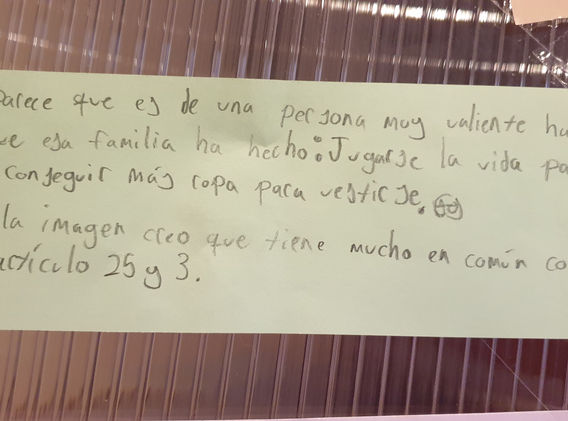 parece que es de una persona muy valiente ha
ue esa familia ha hecho: Jugarse la vida pa
conseguir más ropa para vestirse.
la imagen creo que tiene mucho en común co
artículo 25 y 3.